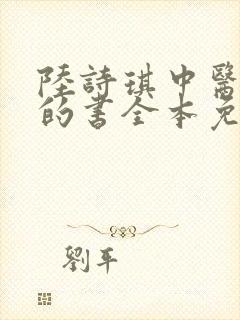 陸詩琪中醫
的書全本免
劉平